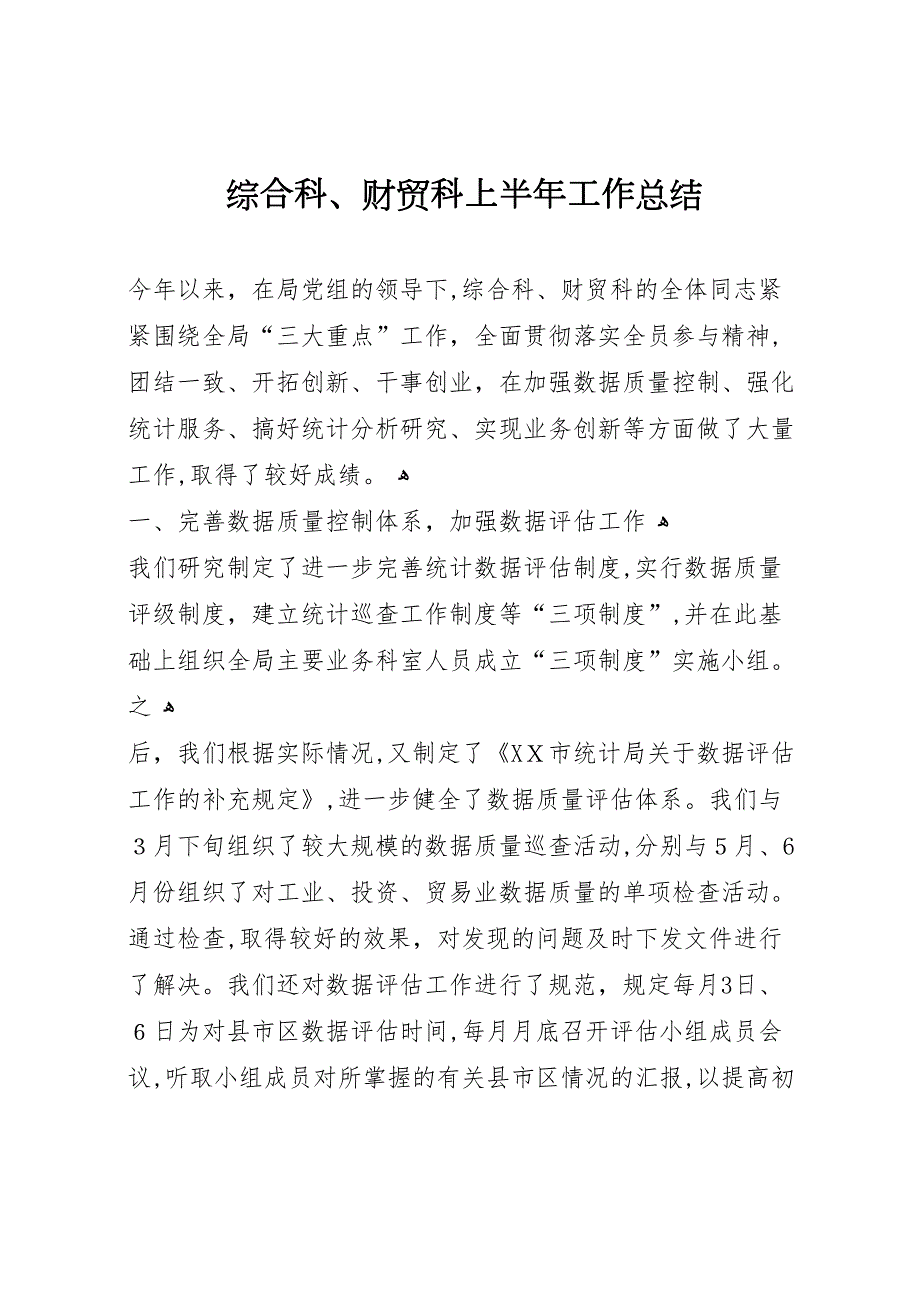 综合科、财贸科上半年工作总结
今年以来，在局党组的领导下,综合科、财贸科的全体同志紧
紧围绕全局“三大重点”工作，全面贯彻落实全员参与精神,
团结一致、开拓创新、干事创业，在加强数据质量控制、强化
统计服务、搞好统计分析研究、实现业务创新等方面做了大量
工作,取得了较好成绩。 ﻫ
一、完善数据质量控制体系，加强数据评估工作 ﻫ
我们研究制定了进一步完善统计数据评估制度,实行数据质量
评级制度，建立统计巡查工作制度等“三项制度”,并在此基
础上组织全局主要业务科室人员成立“三项制度”实施小组。
之 ﻫ
后，我们根据实际情况,又制定了《XＸ市统计局关于数据评估
工作的补充规定》,进一步健全了数据质量评估体系。我们与
３月下旬组织了较大规模的数据质量巡查活动,分别与５月、6
月份组织了对工业、投资、贸易业数据质量的单项检查活动。
通过检查,取得较好的效果，对发现的问题及时下发文件进行
了解决。我们还对数据评估工作进行了规范，规定每月3日、
６日为对县市区数据评估时间,每月月底召开评估小组成员会
议,听取小组成员对所掌握的有关县市区情况的汇报,以提高初